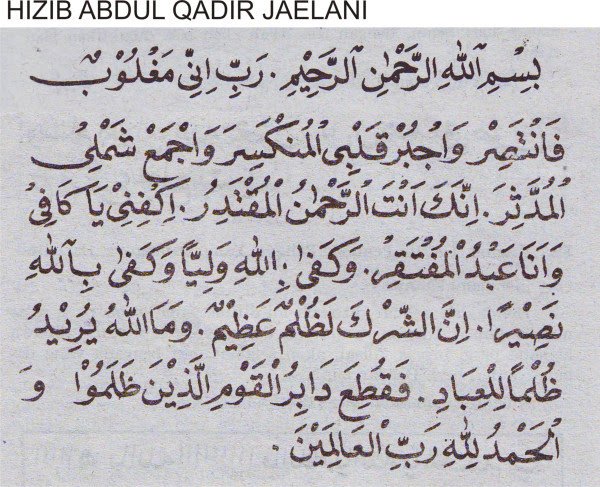 HIZIB ABDUL QADIR JAELANI
بِسْمِ اللهِ الرَّحْمٰنِ الرَّحِيْمِ. رَبِّ اِنِّى مَغْلُوْبٌ
فَانْتَصِرْ وَاجْبُرْ قَلْبِى الْمُنْكَسِرَ وَاجْمَعْ شَمْلِى
الْمُدَّثِرَ. اِنَّكَ اَنْتَ الرَّحْمٰنُ الْمُقْتَدِرُ. اِكْفِنِىْ يَاكَافِىْ
وَاَنَاعَبْدُ الْمُفْتَقِرْ. وَكَفٰى بِاللهِ وَلِيًّا وَكَفٰى بِاللهِ
نَصِيْرًا. اِنَّ الشِّرْكَ لَظُلْمٌ عَظِيْمٌ. وَمَااللهُ يُرِيْدُ
ظُلْمًا لِلْعِبَادِ. فَقُطِعَ دَابِرُ الْقَوْمِ الَّذِيْنَ ظَلَمُوْا وَ
الْحَمْدُ لِلّٰهِ رَبِّ الْعَالَمِيْنَ.